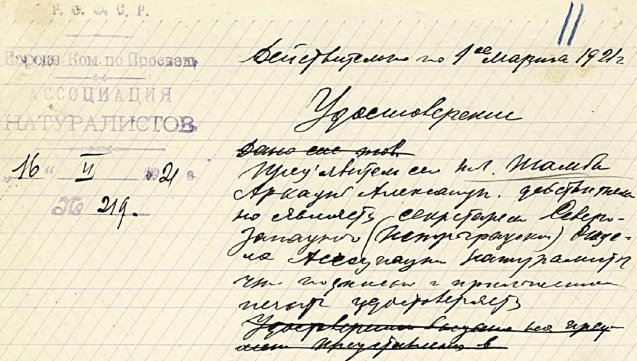 Р. С. Ф. С. Р.
11
Народн. Ком. по Просвещ.
АССОЦИАЦИЯ
НАТУРАЛИСТОВ
"16" II 1921 г.
№ 219.
Действительно по 1ое марта 1921 г
Удостоверение
Дано сие тов.
Пред'явитель сего
Аркадий Александр. действитель
но является секретарем Северо-
Западного (Петроградского) Отде
ла Ассоциации натуралистов
что подписью и приложением
печати удостоверяется
Удостоверение выдано на пред
мет представления в